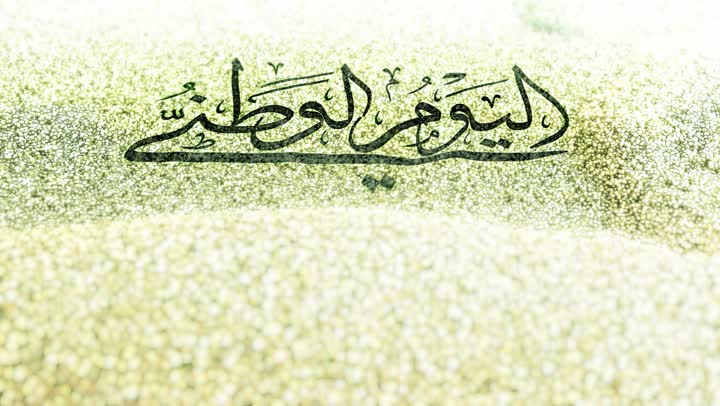 اليَوْمُ الوَطَنيُّ